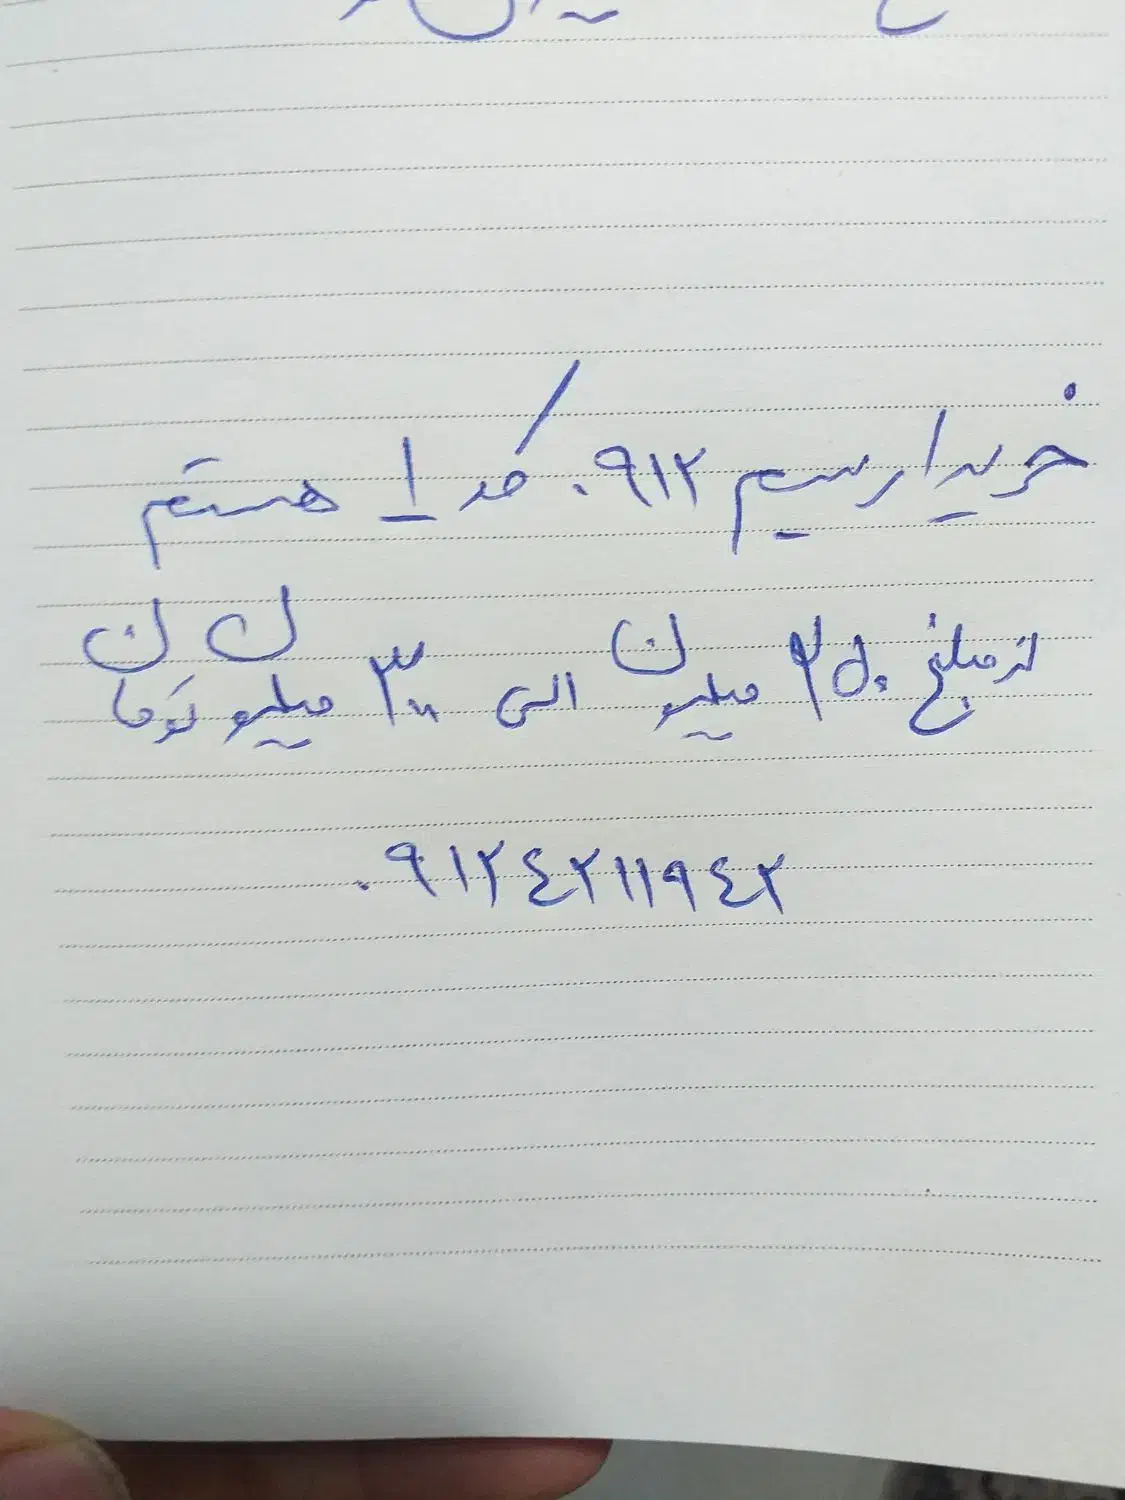 خریدار سیم ۰۹۱۲ کد ۱ هستم
از مبلغ ۲۵۰ میلیون الی ۳۰۰ میلیون تومان
۰۹۱۲۴۲۱۱۹۴۲